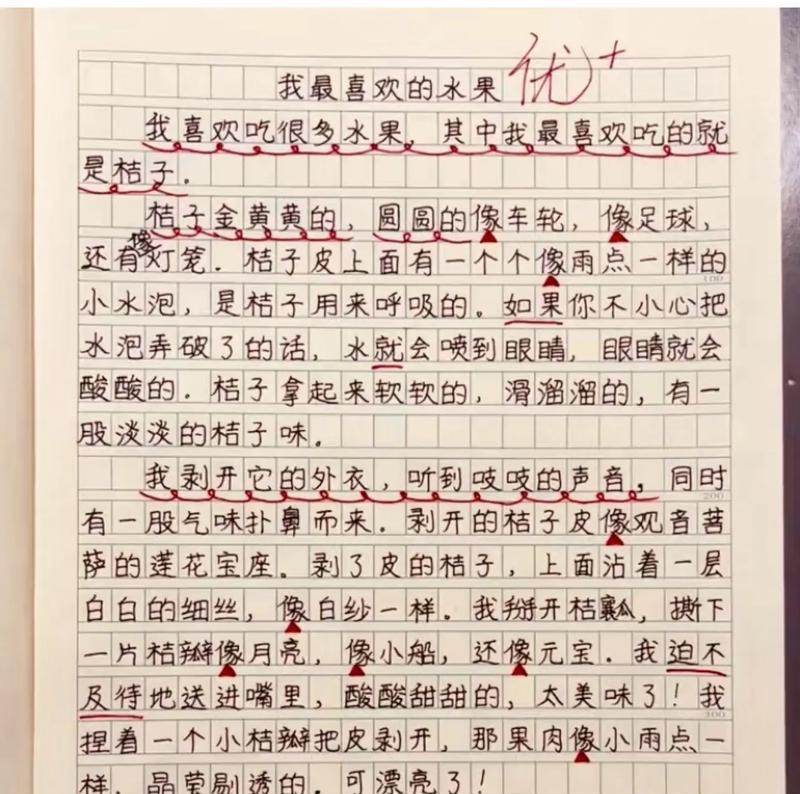 我最喜欢的水果 优+
我喜欢吃很多水果，其中我最喜欢吃的就
是桔子.
桔子金黄黄的，圆圆的像车轮，像足球，
还有像灯笼.桔子皮上面有一个个像雨点一样的
100
小水泡，是桔子用来呼吸的。如果你不小心把
水泡弄破了的话，水就会喷到眼睛，眼睛就会
酸酸的.桔子拿起来软软的，滑溜溜的，有一
股淡淡的桔子味。
我剥开它的外衣，听到吱吱的声音，同时
200
有一股气味扑鼻而来.剥开的桔子皮像观音菩
萨的莲花宝座。剥了皮的桔子，上面沾着一层
白白的细丝，像白纱一样。我掰开桔瓤，撕下
一片桔瓣像月亮，像小船，还像元宝.我迫不
及待地送进嘴里，酸酸甜甜的，太美味了！我
300
捏着一个小桔瓣把皮剥开，那果肉像小雨点一
样，晶莹剔透的.可漂亮了！